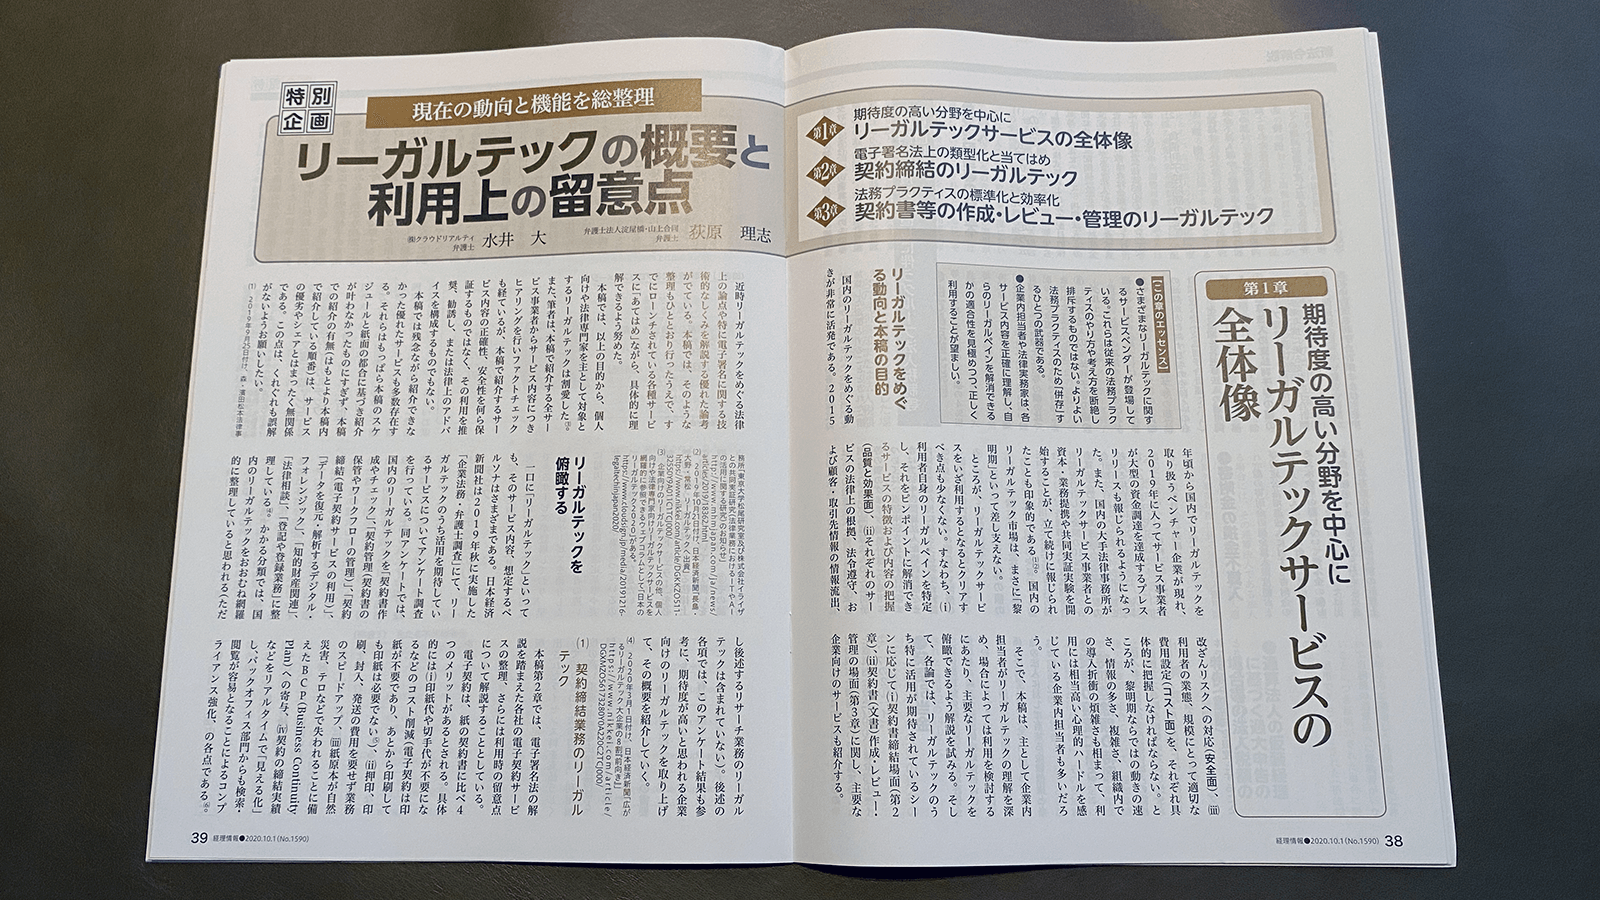 特別企画
現在の動向と機能を総整理
リーガルテックの概要と
利用上の留意点
㈱クラウドリアルティ
弁護士
水井 大
弁護士法人淀屋橋・山上合同
弁護士
荻原 理志
第1章
期待度の高い分野を中心に
リーガルテックサービスの全体像
第2章
電子署名法上の類型化と当てはめ
契約締結のリーガルテック
第3章
法務プラクティスの標準化と効率化
契約書等の作成・レビュー・管理のリーガルテック
第1章
期待度の高い分野を中心に
リーガルテックサービスの
全体像
【この章のエッセンス】
●さまざまなリーガルテックに関す
るサービスベンダーが登場して
いる。これらは従来の法務プラク
ティスのやり方や考え方を断絶し
排斥するものではない。よりよい
法務プラクティスのため「併存」す
るひとつの武器である。
●企業内担当者や法律実務家は、各
サービス内容を正確に理解し、自
らのリーガルペインを解消できる
かの適合性を見極めつつ、正しく
利用することが望ましい。
リーガルテックをめぐ
る動向と本稿の目的
国内のリーガルテックをめぐる動
きが非常に活発である。2015
年頃から国内でリーガルテックを
取り扱うベンチャー企業が現れ、
2019年に入ってサービス事業者
が大型の資金調達を達成するプレス
リリースも報じられるようになっ
た。また、国内の大手法律事務所が
リーガルテックサービス事業者との
資本・業務提携や共同実証実験を開
始することが、立て続けに報じられ
たことも印象的である。国内の
リーガルテック市場は、まさに「黎
明期」といって差し支えない。
ところが、リーガルテックサービ
スをいざ利用するとなるとクリアす
べき点も少なくない。すなわち、(ⅰ)
利用者自身のリーガルペインを特定
し、それをピンポイントに解消でき
るサービスの特徴および内容の把握
(品質と効果面)、(ⅱ)それぞれのサー
ビスの法律上の根拠、法令遵守、お
よび顧客・取引先情報の情報流出、
改ざんリスクへの対応(安全面)、(ⅲ)
利用者の業態、規模にとって適切な
費用設定(コスト面)を、それぞれ具
体的に把握しなければならない。と
ころが、黎明期ならではの動きの速
さ、情報の多さ、複雑さ、組織内で
の導入折衝の煩雑さも相まって、利
用には相当高い心理的ハードルを感
じている企業内担当者も多いだろ
う。
そこで、本稿は、主として企業内
担当者がリーガルテックの理解を深
め、場合によっては利用を検討する
にあたり、主要なリーガルテックを
俯瞰できるよう解説を試みる。そし
て、各論では、リーガルテックのう
ち特に活用が期待されているシー
ンに応じて(ⅰ)契約書締結場面(第2
章)、(ⅱ)契約書(文書)作成・レビュー・
管理の場面(第3章)に関し、主要な
企業向けのサービスも紹介する。
経理情報●2020.10.1(No.1590) 38
近時リーガルテックをめぐる法律
上の論点や特に電子署名に関する技
術的なしくみを解説する優れた論考
がでている。本稿では、そのような
整理もひととおり行ったうえで、す
でにローンチされている各種サービ
スに「あてはめ」ながら、具体的に理
解できるよう努めた。
本稿では、以上の目的から、個人
向けや法律専門家を主として対象と
するリーガルテックは割愛した(3)。
また、筆者は、本稿で紹介する全サー
ビス事業者からサービス内容につき
ヒアリングを行いファクトチェック
も経ているが、本稿で紹介するサー
ビス内容の正確性、安全性を何ら保
証するものではなく、その利用を推
奨、勧誘し、または法律上のアドバ
イスを構成するものでもない。
本稿では残念ながら紹介できな
かった優れたサービスも多数存在す
る。それらはもっぱら本稿のスケ
ジュールと紙面の都合に基づき紹介
が叶わなかったものにすぎず、本稿
での紹介の有無(はもとより本稿内
で紹介している順番)は、サービス
の優劣やシェアとはまったく無関係
である。この点は、くれぐれも誤解
がないようお願いしたい。
(1) 2019年9月25日付け、森・濱田松本法律事
務所「東京大学松尾研究室及び株式会社イライザ
との共同実証研究(法律業務におけるIT・AI
の活用に関する研究)のお知らせ」
(2) 2019年9月21日付け、日本経済新聞「長島・
大野・常松、リーガルテックへ出資」
(3) 企業向けのリーガルテックサービスの他、個人
向けや法律専門家向けリーガルテックサービスを
網羅的に参照できるウェブコラムとして、「日本の
リーガルテック2020」がある。
リーガルテックを
俯瞰する
一口に「リーガルテック」といって
も、そのサービス内容、想定するペ
ルソナはさまざまである。日本経済
新聞社は2019年秋に実施した
「企業法務・弁護士調査」にて、リー
ガルテックのうち活用を期待してい
るサービスについてアンケート調査
を行っている。同アンケートでは、
国内のリーガルテックを「契約書作
成やチェック」、「契約管理(契約書の
保管やワークフローの管理)」、「契約
締結(電子契約サービスの利用)」、
「データを復元・解析するデジタル・
フォレンジック」、「知的財産関連」、
「法律相談」、「登記や登録業務」に整
理している(4)。かかる分類では、国
内のリーガルテックをおおむね網羅
的に整理していると思われる(ただ
し後述するリサーチ業務のリーガル
テックは含まれていない)。後述の
各項では、このアンケート結果も参
考に、期待度が高いと思われる企業
向けのリーガルテックを取り上げ
て、その概要を紹介していく。
(4) 2020年3月1日付け、日本経済新聞「広が
るリーガルテック 大企業の8割「前向き」」
(1) 契約締結業務のリーガル
テック
本稿第2章では、電子署名法の解
説を踏まえた各社の電子契約サービ
スの整理、さらには利用時の留意点
について解説することとしている。
電子契約は、紙の契約書に比べ4
つのメリットがあるとされる。具体
的には(ⅰ)印紙代や切手代が不要にな
るなどのコスト削減(電子契約は印
紙が不要であり、あとから印刷して
も印紙は必要でない(5))、(ⅱ)押印、印
刷、封入、発送の費用を要せず業務
のスピードアップ、(ⅲ)紙原本が自然
災害、テロなどで失われることに備
えたBCP(Business Continuity
Plan)への寄与、(ⅳ)契約の締結実績
などをリアルタイムで「見える化」
し、バックオフィス部門からも検索・
閲覧が容易となることによるコンプ
ライアンス強化、の各点である(6)。
39 経理情報●2020.10.1(No.1590)